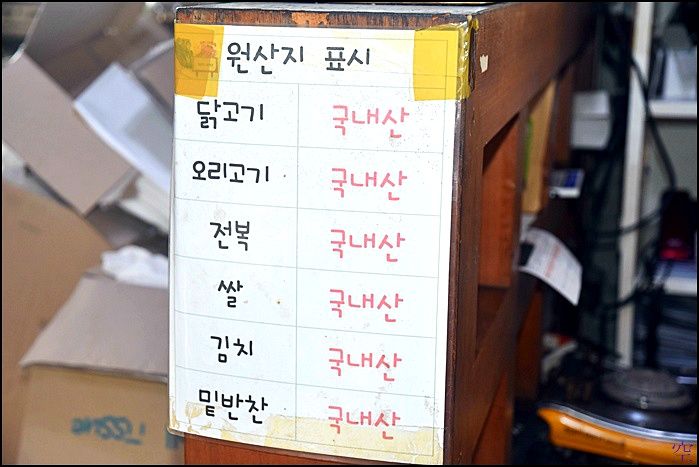 원산지 표시
닭고기 국내산
오리고기 국내산
전복 국내산
쌀 국내산
김치 국내산
밑반찬 국내산